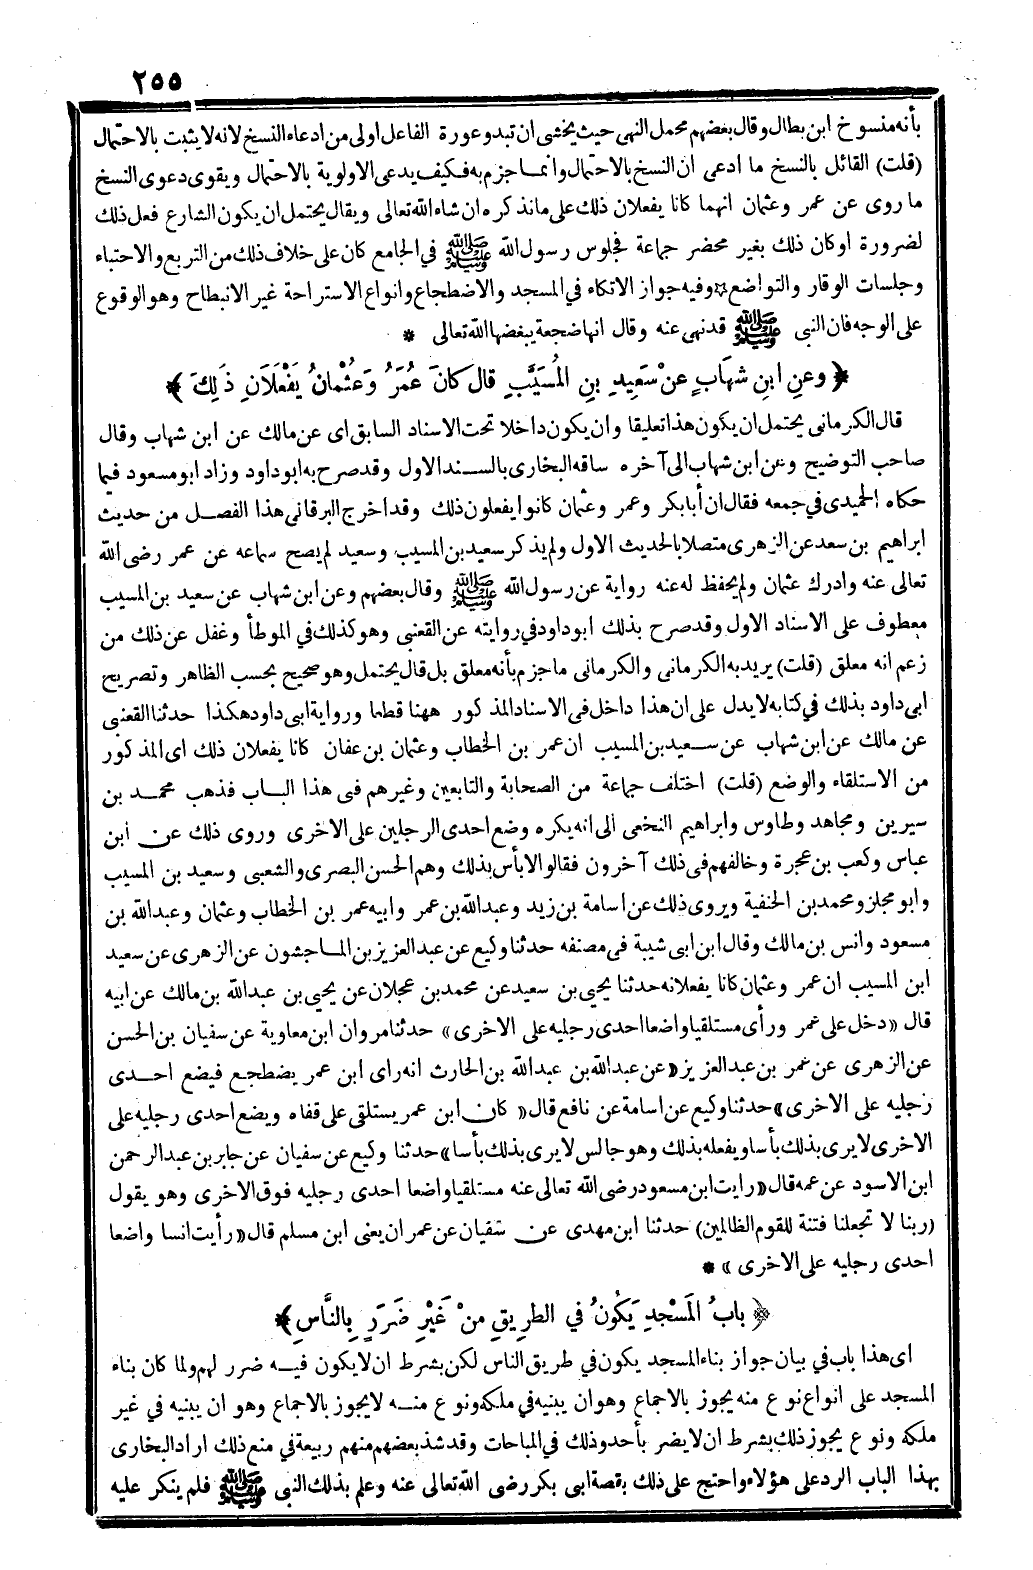 ٢٥٥
بأنه منسوخ ابن بطال وقال بعضهم محمل النهى حيث يخشى ان تبدو عورة الفاعل اولى من ادعاء النسخ لانه لا يثبت بالاحتمال
(قلت) القائل بالنسخ ما ادعى ان النسخ بالاحتمال وانما جزم به فكيف يدعى الاولوية بالاحتمال ويقوى دعوى النسخ
ما روى عن عمر وعثمان انهما كانا يفعلان ذلك على ما نذكره ان شاء الله تعالى ويقال يحتمل ان يكون الشارع فعل ذلك
لضرورة او كان ذلك بغير محضر جماعة فجلوس رسول الله ﷺ في الجامع كان على خلاف ذلك من التربع والاحتباء
وجلسات الوقار والتواضع * وفيه جواز الاتكاء في المسجد والاضطجاع وانواع الاستراحة غير الانبطاح وهو الوقوع
على الوجه فان النبى ﷺ قد نهى عنه وقال انها ضجعة يبغضها الله تعالى *
﴿ وعنِ ابنِ شهَابٍ عنْ سَعِيدِ بنِ المُسَيَّبِ قال كانَ عُمَرُ وَعُثْمانُ يَفْعَلَانِ ذَلِكَ ﴾
قال الكرمانى يحتمل ان يكون هذا تعليقا وان يكون داخلا تحت الاسناد السابق اى عن مالك عن ابن شهاب وقال
صاحب التوضيح وعن ابن شهاب الى آخره ساقه البخارى بالسند الاول وقد صرح به ابو داود وزاد ابو مسعود فيما
حكاه الحميدى في جمعه فقال ان أبا بكر وعمر وعثمان كانوا يفعلون ذلك وقد اخرج البرقانى هذا الفصل من حديث
ابراهيم بن سعد عن الزهرى متصلا بالحديث الاول ولم يذكر سعيد بن المسيب وسعيد لم يصح سماعه عن عمر رضى الله
تعالى عنه وادرك عثمان ولم يحفظ له عنه رواية عن رسول الله ﷺ وقال بعضهم وعن ابن شهاب عن سعيد بن المسيب
معطوف على الاسناد الاول وقد صرح بذلك ابو داود في روايته عن القعنبى وهو كذلك في الموطأ وغفل عن ذلك من
زعم انه معلق (قلت) يريد به الكرمانى والكرمانى ما جزم بأنه معلق بل قال يحتمل وهو صحيح بحسب الظاهر وتصريح
ابى داود بذلك في كتابه لا يدل على ان هذا داخل فى الاسناد المذكور ههنا قطعا ورواية ابى داود هكذا حدثنا القعنبى
عن مالك عن ابن شهاب عن سعيد بن المسيب ان عمر بن الخطاب وعثمان بن عفان كانا يفعلان ذلك اى المذكور
من الاستلقاء والوضع (قلت) اختلف جماعة من الصحابة والتابعين وغيرهم فى هذا الباب فذهب محمد بن
سيرين ومجاهد وطاوس وابراهيم النخعى الى انه يكره وضع احدى الرجلين على الاخرى وروى ذلك عن ابن
عباس وكعب بن عجرة وخالفهم فى ذلك آخرون فقالوا لا بأس بذلك وهم الحسن البصرى والشعبى وسعيد بن المسيب
وابو مجلز ومحمد بن الحنفية ويروى ذلك عن اسامة بن زيد وعبد الله بن عمر وابيه عمر بن الخطاب وعثمان وعبد الله بن
مسعود وانس بن مالك وقال ابن ابى شيبة فى مصنفه حدثنا وكيع عن عبد العزيز بن الماجشون عن الزهرى عن سعيد
ابن المسيب ان عمر وعثمان كانا يفعلانه حدثنا يحيى بن سعيد عن محمد بن عجلان عن يحيى بن عبد الله بن مالك عن ابيه
قال «دخل على عمر ورأى مستلقيا واضعا احدى رجليه على الاخرى» حدثنا مروان ابن معاوية عن سفيان بن الحسن
عن الزهرى عن عمر بن عبد العزيز «عن عبد الله بن عبد الله بن الحارث انه راى ابن عمر يضطجع فيضع احدى
رجليه على الاخرى» حدثنا وكيع عن اسامة عن نافع قال «كان ابن عمر يستلقى على قفاه ويضع احدى رجليه على
الاخرى لا يرى بذلك بأسا ويفعله بذلك وهو جالس لا يرى بذلك بأسا» حدثنا وكيع عن سفيان عن جابر بن عبد الرحمن
ابن الاسود عن عمه قال «رايت ابن مسعود رضى الله تعالى عنه مستلقيا واضعا احدى رجليه فوق الاخرى وهو يقول
(ربنا لا تجعلنا فتنة للقوم الظالمين) حدثنا ابن مهدى عن سفيان عن عمران يعنى ابن مسلم قال «رأيت انسا واضعا
احدى رجليه على الاخرى» *
﴿ بابُ المَسْجدِ يَكُونُ في الطرِيقِ مِنْ غَيْرِ ضَرَرٍ بِالنَّاسِ ﴾
اى هذا باب في بيان جواز بناء المسجد يكون في طريق الناس لكن بشرط ان لا يكون فيه ضرر لهم ولما كان بناء
المسجد على انواع نوع منه يجوز بالاجماع وهو ان يبنيه في ملكه ونوع منه لا يجوز بالاجماع وهو ان يبنيه في غير
ملكه ونوع يجوز ذلك بشرط ان لا يضر بأحد وذلك في المباحات وقد شذ بعضهم منهم ربيعة في منع ذلك اراد البخارى
بهذا الباب الرد على هؤلاء واحتج على ذلك بقصة ابى بكر رضى الله تعالى عنه وعلم بذلك النبى ﷺ فلم ينكر عليه